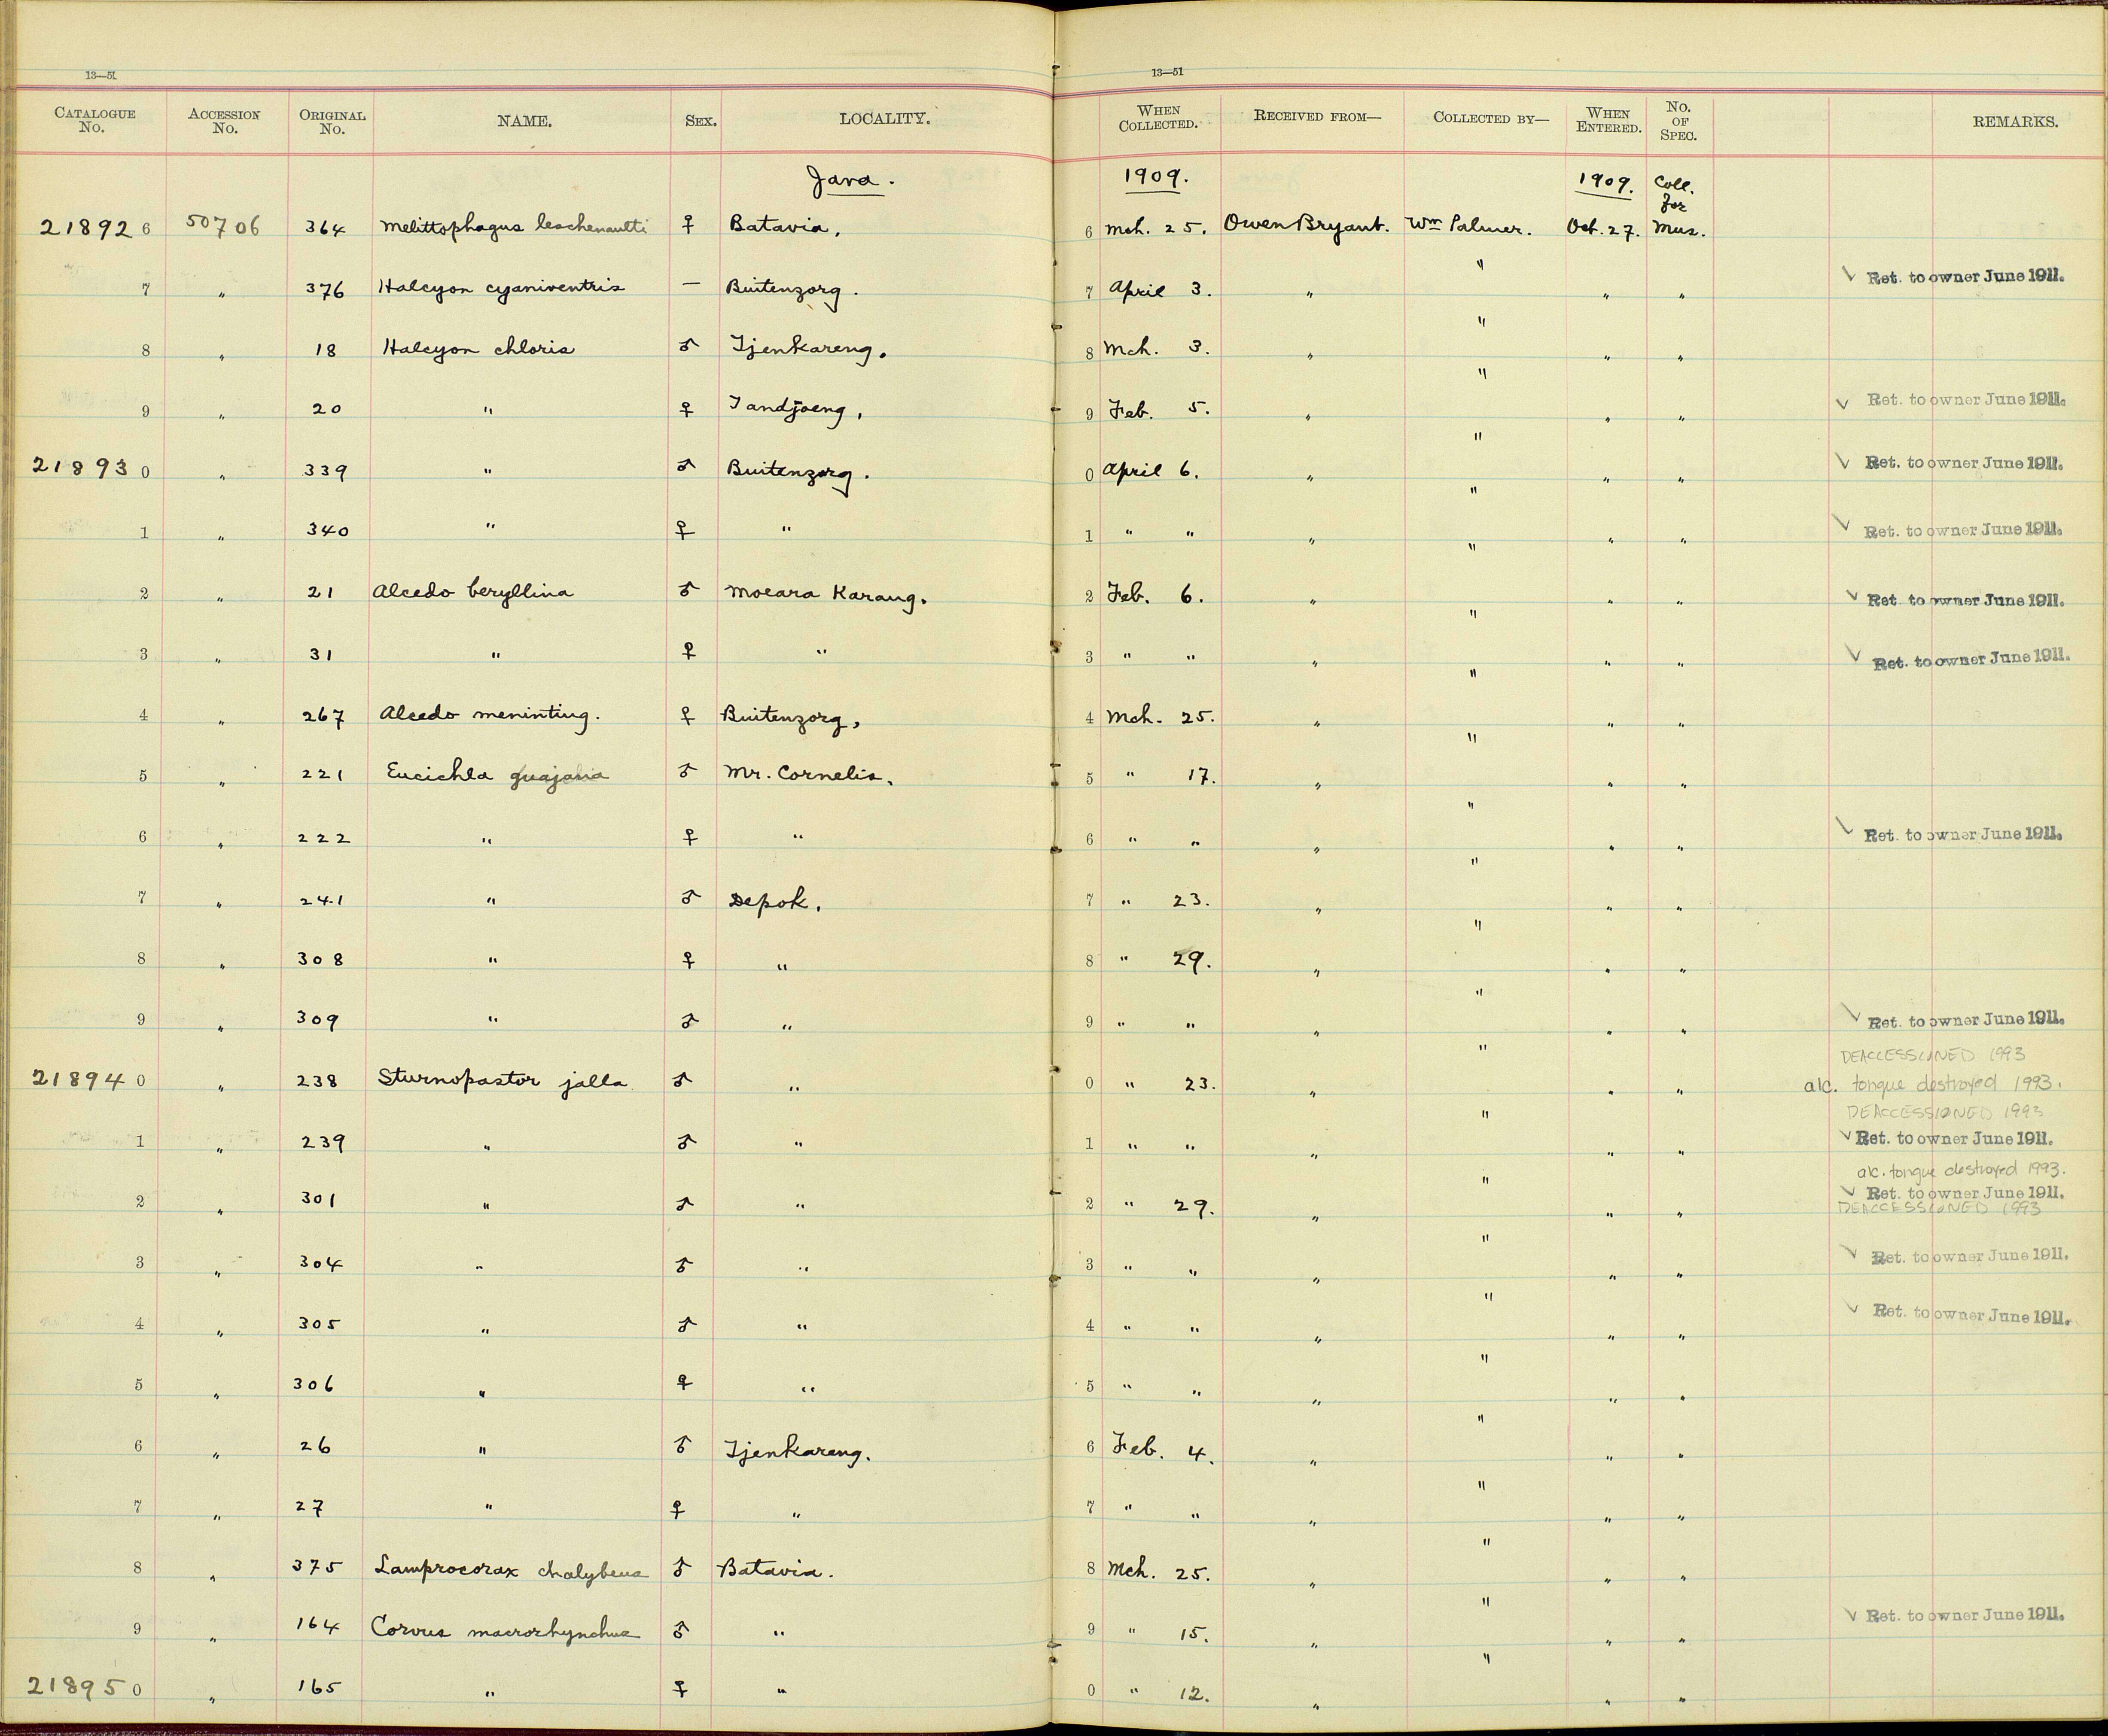 13—51
13—51
CATALOGUE No. ACCESSION No. ORIGINAL No. NAME. SEX. LOCALITY. WHEN COLLECTED. RECEIVED FROM— COLLECTED BY— WHEN ENTERED. No. OF SPEC. REMARKS.
Java. 1909. 1909. Coll. for
218926 50706 364 Melittophagus leschenaulti ♀ Batavia, 6 Mch. 25. Owen Bryant. Wm Palmer. Oct. 27. Mus.
7 " 376 Halcyon cyaniventris — Buitenzorg. 7 April 3. " " " " √ Ret. to owner June 1911.
8 " 18 Halcyon chloris ♂ Tjenkareng. 8 Mch. 3. " " " "
9 " 20 " ♀ Tandjoeng, 9 Feb. 5. " " " " √ Ret. to owner June 1911.
218930 " 339 " ♂ Buitenzorg. 0 April 6. " " " " √ Ret. to owner June 1911.
1 " 340 " ♀ " 1 " " " " " " √ Ret. to owner June 1911.
2 " 21 Alcedo beryllina ♂ Moeara Karang. 2 Feb. 6. " " " " √ Ret. to owner June 1911.
3 " 31 " ♀ " 3 " " " " " " √ Ret. to owner June 1911.
4 " 267 Alcedo meninting. ♀ Buitenzorg, 4 Mch. 25. " " " "
5 " 221 Eucichla guajana ♂ Mr. Cornelis. 5 " 17. " " " "
6 " 222 " ♀ " 6 " " " " " " √ Ret. to owner June 1911.
7 " 241 " ♂ Depok. 7 " 23. " " " "
8 " 308 " ♀ " 8 " 29. " " " "
9 " 309 " ♂ " 9 " " " " " " √ Ret. to owner June 1911.
DEACCESSIONED 1993
218940 " 238 Sturnopastor jalla ♂ " 0 " 23. " " " " alc. tongue destroyed 1993.
DEACCESSIONED 1993
1 " 239 " ♂ " 1 " " " " " " √ Ret. to owner June 1911.
alc. tongue destroyed 1993.
2 " 301 " ♂ " 2 " 29. " " " " √ Ret. to owner June 1911.
DEACCESSIONED 1993
3 " 304 " ♂ " 3 " " " " " " √ Ret. to owner June 1911.
4 " 305 " ♂ " 4 " " " " " " √ Ret. to owner June 1911.
5 " 306 " ♀ " 5 " " " " " "
6 " 26 " ♂ Tjenkareng. 6 Feb. 4. " " " "
7 " 27 " ♀ " 7 " " " " " "
8 " 375 Lamprocorax chalybeus ♂ Batavia. 8 Mch. 25. " " " "
9 " 164 Corvus macrorhynchus ♂ " 9 " 15. " " " " √ Ret. to owner June 1911.
218950 " 165 " ♀ " 0 " 12. " " " "